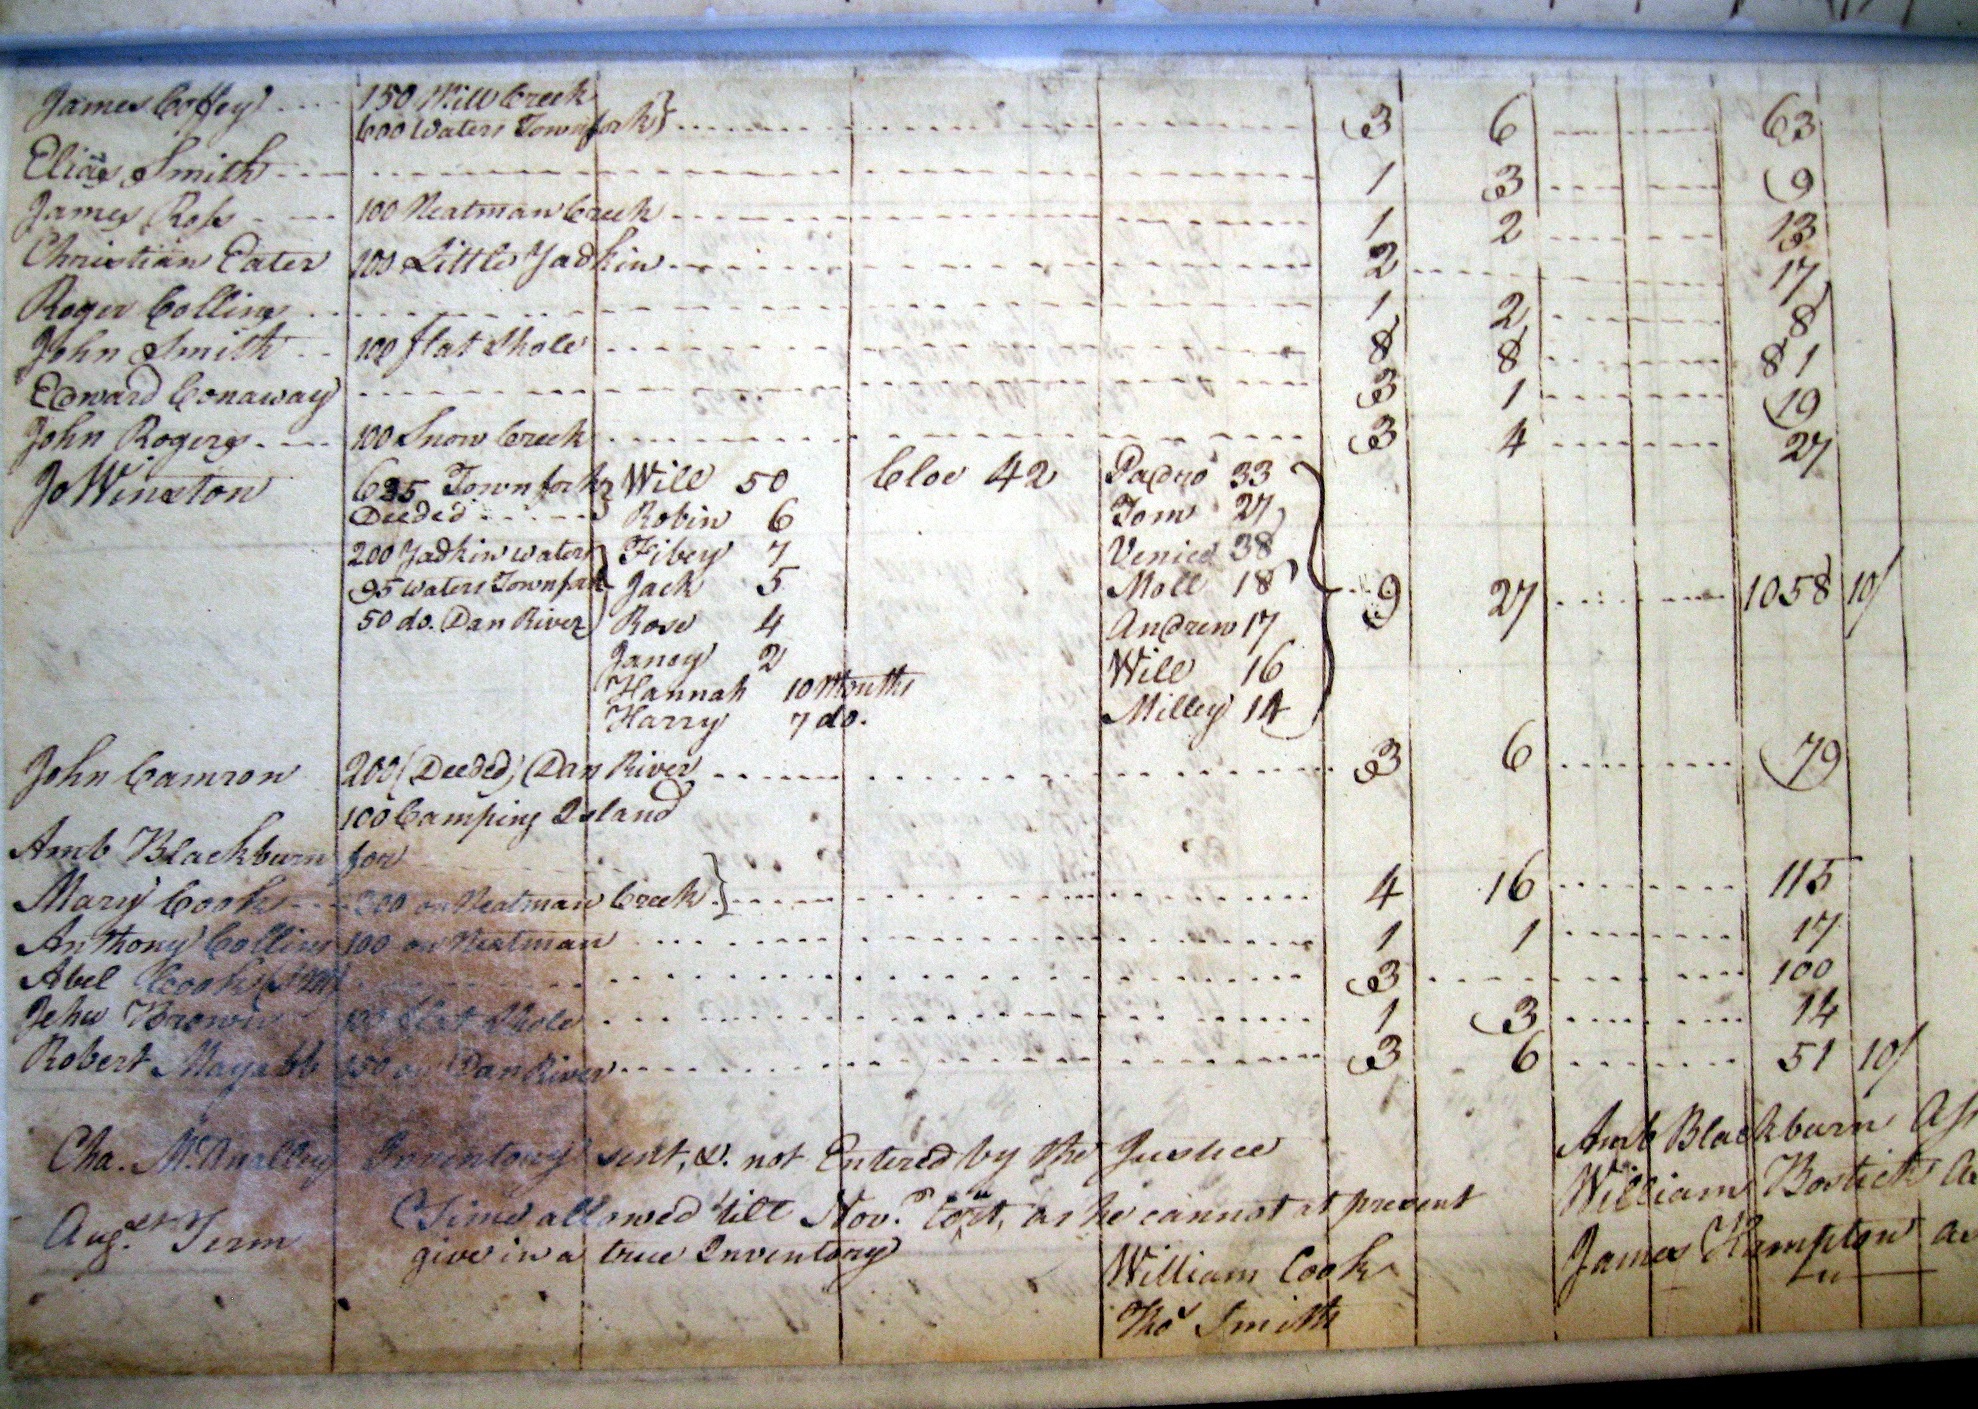 James Coffey 150 Mill Creek
600 Waters Townfork 3 6 63
Elias Smith 1 3 9
James Ross 100 Neatman Creek 1 2 13
Christian Eater 100 Little Yadkin 2 17
Roger Collins 1 2 8
John Smith 100 flat Shole 8 8 81
Edward Conaway 3 1 19
John Rogers 100 Snow Creek 3 4 27
Jo Winston 625 Townfork Will 50 Cloe 42 Pedro 33
Deeded Robin 6 Tom 27
200 Yadkin waters Fibey 7 Venice 38
95 Waters Townfork Jack 5 Moll 18 9 27 1058 10/
50 do. Dan River Rose 4 Andrew 17
Janey 2 Will 16
Hannah 10 Months
Harry 7 do. Milley 14
John Camron 200 (Deeded) Dan River 3 6 79
100 Camping Island
Amb Blackburn for
Mary Cook 200 on Neatman Creek 4 16 115
Anthony Collins 100 on Neatman 1 1 17
Abel Cook 3 100
Jehu Brown 100 flat Shole 1 3 14
Robert Mayabb 150 on Dan River 3 6 51 10/
Cha. McAnalley Inventory sent, &. not Entered by the Justice
Augst. Term Time allowed till Nov.r Cort, as he cannot at present
give in a true Inventory
William Cook
Thos Smith
Amb Blackburn
William Bostick
James Hampton